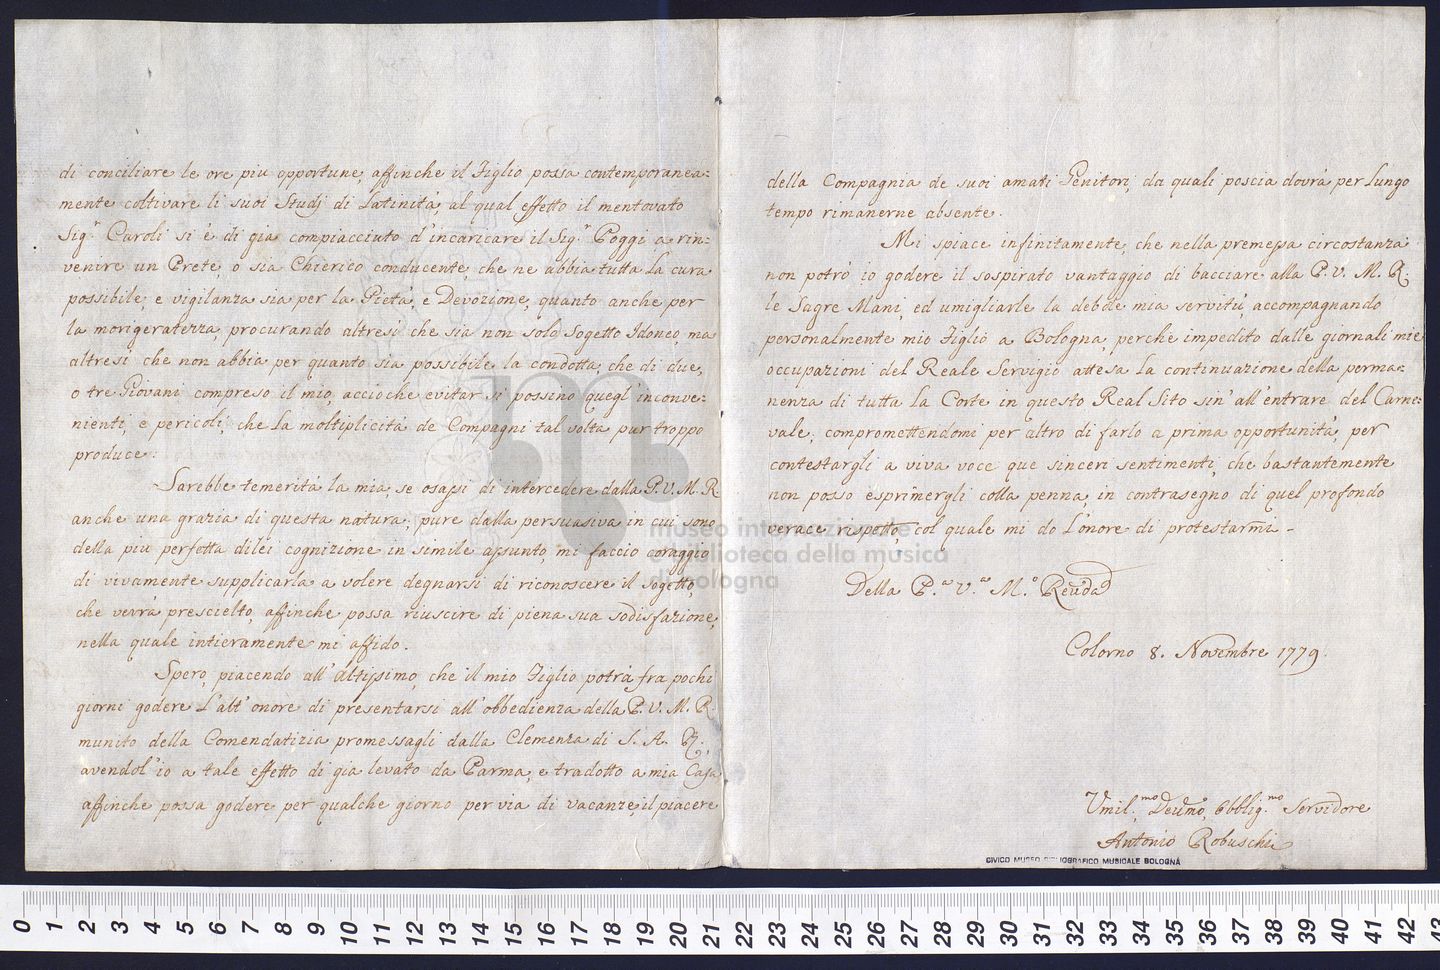 di conciliare le ore piu opportune, affinche il Figlio possa contemporanea=
mente coltivare li suoi Studj di Latinità, al qual effetto il mentovato
Sig.r Caroli si è di già compiacciuto d'incaricare il Sig.r Poggi a rin=
venire un Prete, o sia Chierico conducente, che ne abbia tutta la cura
possibile, e vigilanza sia per la Pietà, e Devozione, quanto anche per
la morigeratezza, procurando altresì che sia non solo Sogetto Idoneo, ma
altresì che non abbia per quanto sia possibile la condotta, che di due,
o tre Giovani compreso il mio, acciocche evitar si possino quegl'inconve=
nienti, e pericoli, che la moltiplicità de Compagni tal volta pur troppo
produce.
Sarebbe temerità la mia, se osassi di intercedere dalla P. V. M. R.
anche una grazia di questa natura; pure dalla persuasiva in cui sono
della piu perfetta dilei cognizione in simile assunto, mi faccio coraggio
di vivamente supplicarla a volere degnarsi di riconoscere il Sogetto,
che verrà prescielto, affinche possa riuscire di piena sua sodisfazione,
nella quale intieramente mi affido.
Spero, piacendo all'Altissimo, che il mio Figlio potrà fra pochi
giorni godere l'alt'onore di presentarsi all'obbedienza della P. V. M. R.
munito della Comendatizia promessagli dalla Clemenza di S. A. R.,
avendol'io a tale effetto di già levato da Parma, e tradotto a mia Casa
affinche possa godere per qualche giorno per via di vacanze, il piacere
della Compagnia de suoi amati Genitori, da quali poscia dovrà per lungo
tempo rimanerne absente.
Mi spiace infinitamente, che nella premessa circostanza
non potrò io godere il sospirato vantaggio di bacciare alla P. V. M. R.
le Sagre Mani, ed umigliarle la debole mia servitù, accompagnando
personalmente mio Figlio a Bologna, perche impedito dalle giornali mie
occupazioni del Reale Servigio attesa la continuazione della perma=
nenza di tutta la Corte in questo Real Sito sin'all'entrare del Carne=
vale; compromettendomi per altro di farlo a prima opportunità, per
contestargli a viva voce que sinceri sentimenti, che bastantemente
non posso esprimergli colla penna, in contrasegno di quel profondo
verace rispetto, col quale mi do l'onore di protestarmi -
Della P.tà V.ra M.o Reuda
Colorno 8. Novembre 1779.
Umil.mo Deumo, Obblig.mo Servidore
Antonio Robuschi
CIVICO MUSEO BIBLIOGRAFICO MUSICALE BOLOGNA
museo internazionale
e biblioteca della musica
di bologna
0 1 2 3 4 5 6 7 8 9 10 11 12 13 14 15 16 17 18 19 20 21 22 23 24 25 26 27 28 29 30 31 32 33 34 35 36 37 38 39 40 41 42 43